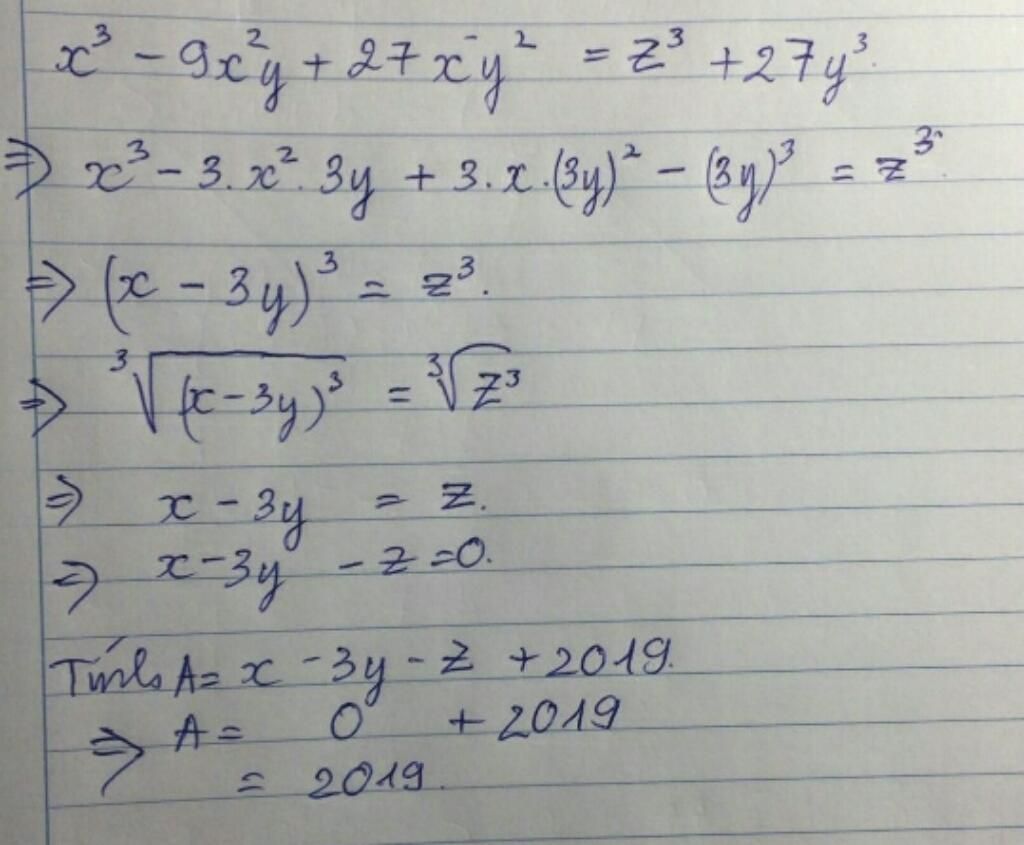 x³ - 9x²y + 27xy² = z³ + 27y³.
⇒ x³ - 3.x².3y + 3.x.(3y)² - (3y)³ = z³.
⇒ (x - 3y)³ = z³.
⇒ ∛(x-3y)³ = ∛z³
⇒ x - 3y = z.
⇒ x - 3y - z = 0.
Tính A = x - 3y - z + 2019.
⇒ A = 0 + 2019
= 2019.